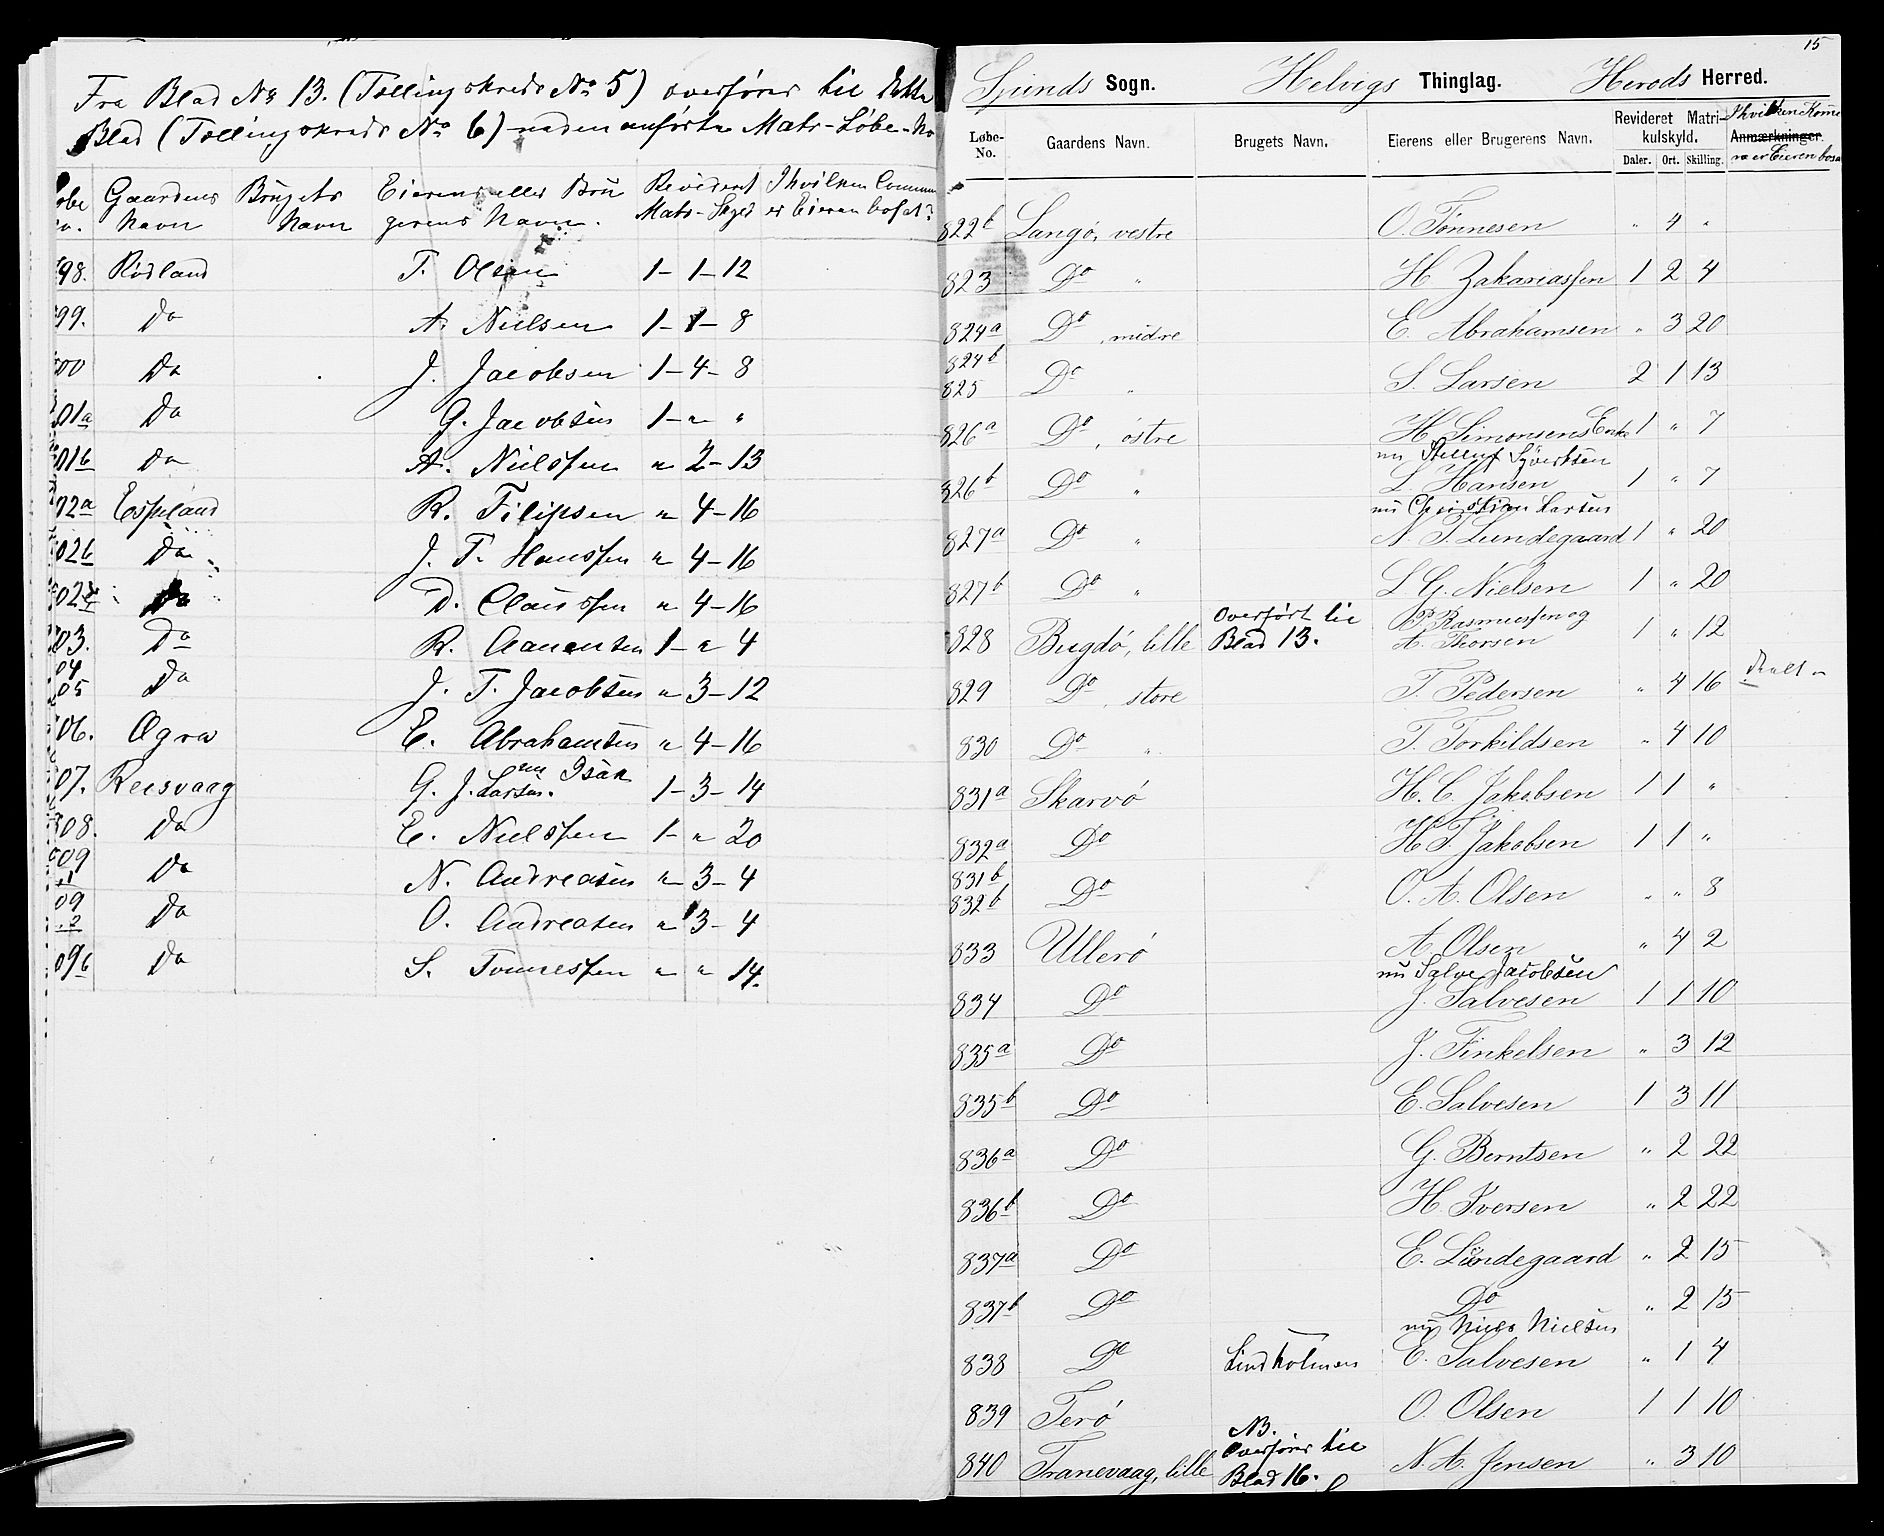 Fra Blad No 13. (Tællingskreds No 5) overføres til dette
Blad (Tællingskreds No 6) nedenanførte Matr-Løbe-No
Gaardens Navn | Brugets Navn | Eierens eller Brugerens Navn. | Revideret Matr-Skyld | I hvilken Commune er Eieren bosat?
98. Rødland T. Olsen 1-1-12
99. Do A. Nielsen 1-1-8
00 Do J. Jacobsen 1-4-8
01a Do G. Jacobsen 1-"-"
01b Do A. Nielssen "2-13
02a Espeland R. Filipsen "4-16
02b Do J. T. Hanssen "4-16
02 Do D. Claussen "4-16
03. Do R. Aanensen 1-"4
04
05 Do J. T. Jacobsen "3-12
06. Øgra E. Abrahamsen "4-16
07. Reisvaag G. J. Larsen. nu Isak 1-3-14
08. Do E. Nielssen 1-"20
09
.1 Do N. Andreasen "3-4
09
.2 Do O. Andreasen "3-4
09b Do S. Tønnessen " " 14.
15
Spinds Sogn. Helvigs Thinglag. Herods Herred.
Løbe-No. | Gaardens Navn. | Brugets Navn. | Eierens eller Brugerens Navn. | Revideret Matrikulskyld. Daler. Ort. Skilling. | Anmærkninger. I hvilken Komme
822b Langø, vestre O. Tønnesen " 4 "
823 Do " H. Zakariassen 1 2 4
824a Do, midre E. Abrahamsen " 3 20
824b
825 Do " S. Larsen 2 1 13
826a Do, østre H. Simonsens Enke 1 " 7
nu Sjvertsen
826b Do " L. Hansen 1 " 7
nu Christian Larsen
827a Do " N. T. Lundegaard 1 " 20
827b Do " L. G. Nielsen 1 " 20
828 Bugdø, lille Overført til Blad 13. P. Rasmussen og A. Thorsen 1 " 12
829 Do, store T. Pedersen " 4 16
830 Do " T. Torkildsen " 4 10
831a Skarvø H. C. Jakobsen 1 1 "
832a Do H. T. Jakobsen 1 1 "
831b
832b Do O. A. Olsen " " 8
833 Ullerø A. Olsen " 4 2
nu Salve Jacobsen
834 Do J. Salvesen 1 1 10
835a Do J. Finkelsen " 3 12
835b Do E. Salvesen 1 3 11
836a Do G. Berntsen " 2 22
836b Do H. Iversen " 2 22
837a Do E. Lundegaard " 2 15
837b Do Do " 2 15
nu Niels Nielsen
838 Do Lindholmen E. Salvesen " 1 4
839 Terø O. Olsen 1 1 10
840 Tranevaag, lille NB. Overføres til Blad 16. N. A. Jensen " 3 10